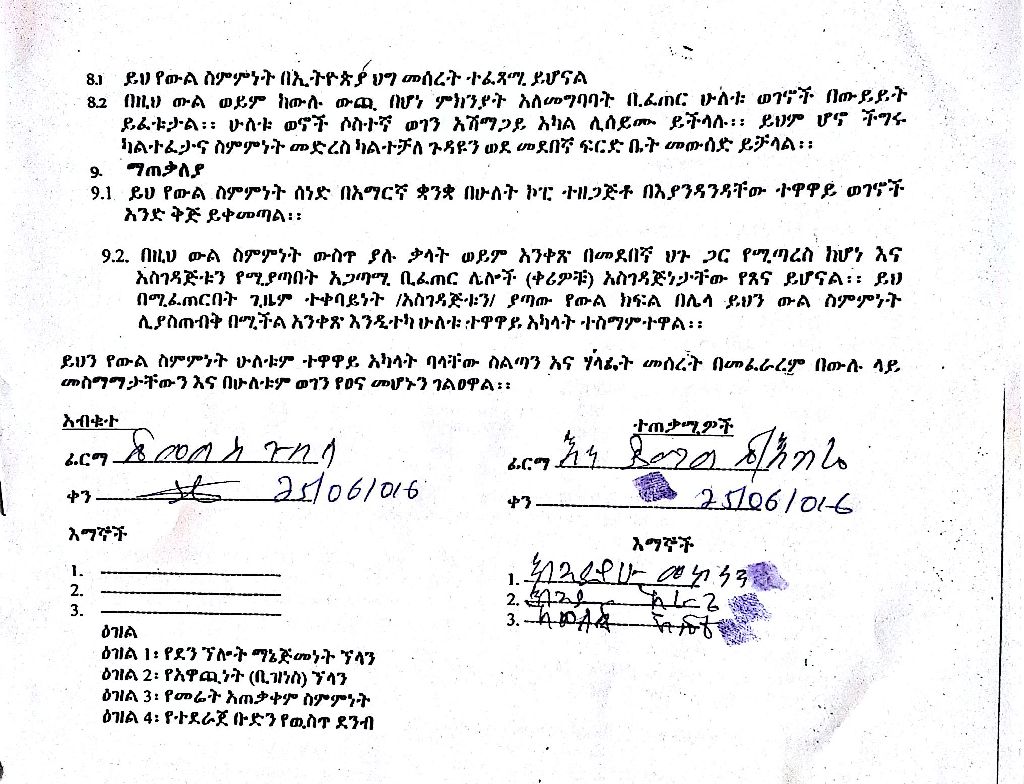 8.1 ይህ የውል ስምምነት በኢትዮጵያ ህግ መሰረት ተፈጻሚ ይሆናል
8.2 በዚህ ውል ወይም ከውሉ ውጪ በሆነ ምክንያት አለመግባባት ቢፈጠር ሁለቱ ወገኖች በውይይት
ይፈቱታል፡፡ ሁለቱ ወኖች ሶስተኛ ወገን አሸማጋይ አካል ሊሰይሙ ይችላሉ፡፡ ይህም ሆኖ ችግሩ
ካልተፈታና ስምምነት መድረስ ካልተቻለ ጉዳዩን ወደ መደበኛ ፍርድ ቤት መውሰድ ይቻላል፡፡
9. ማጠቃለያ
9.1 ይህ የውል ስምምነት ሰነድ በአማርኛ ቋንቋ በሁለት ኮፒ ተዘጋጅቶ በእያንዳንዳቸው ተዋዋይ ወገኖች
አንድ ቅጅ ይቀመጣል፡፡
9.2. በዚህ ውል ስምምነት ውስጥ ያሉ ቃላት ወይም አንቀጽ በመደበኛ ህጉ ጋር የሚጣረስ ከሆነ እና
አስገዳጅቱን የሚያጣበት አጋጣሚ ቢፈጠር ሌሎች (ቀሪዎቹ) አስገዳጅነታቸው የጸና ይሆናል፡፡ ይህ
በሚፈጠርበት ጊዜም ተቀባይነት /አስገዳጅቱን/ ያጣው የውል ክፍል በሌላ ይህን ውል ስምምነት
ሊያስጠብቅ በሚችል አንቀጽ እንዲተካ ሁለቱ ተዋዋይ አካላት ተስማምተዋል፡፡
ይህን የውል ስምምነት ሁለቱም ተዋዋይ አካላት ባላቸው ስልጣን እና ሃላፊት መሰረት በመፈራረም በውሉ ላይ
መስማማታቸውን እና በሁለቱም ወገን የፀና መሆኑን ገልፀዋል፡፡
አብቁተ
ፊርማ
ቀን 25/06/016
እማኞች
1.
2.
3.
ተጠቃሚዎች
ፊርማ
ቀን 25/06/016
እማኞች
1.
2.
3.
ዕዝል
ዕዝል 1፡ የደን ፕሎት ማኔጅመነት ፕላን
ዕዝል 2፡ የአዋጪነት (ቢዝነስ) ፕላን
ዕዝል 3፡ የመሬት አጠቃቀም ስምምነት
ዕዝል 4፡ የተደራጀ ቡድን የዉስጥ ደንብ